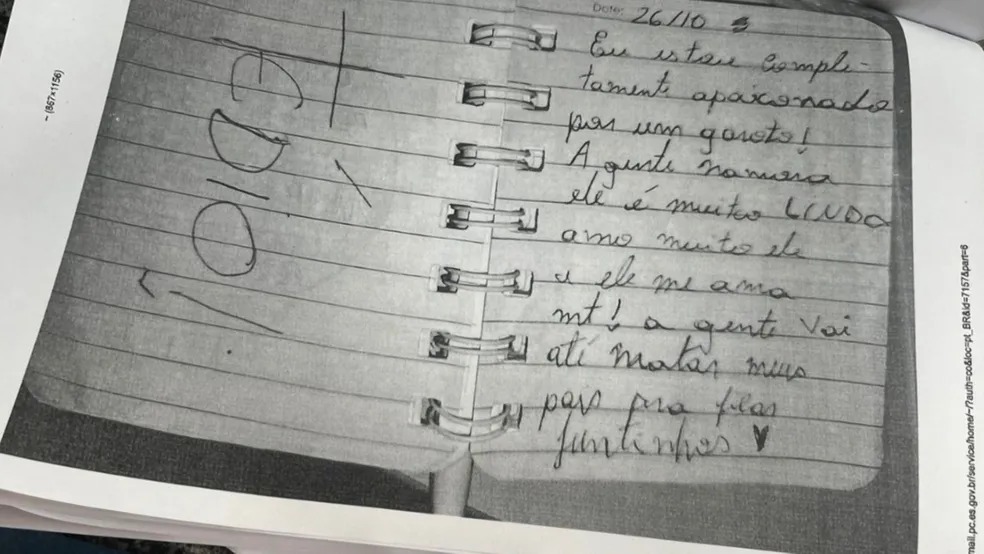 - (867×1156)
Date: 26/10
Eu estou comple-
tamente apaixonado
por um garoto!
A gente namora
ele é muito LINDO
amo muito ele
e ele me ama
mt! a gente vai
até matar meus
pais pra ficar
juntinhos ♥
mail.pc.es.gov.br/service/home/~/?auth=co&loc=pt_BR&id=7157&part=6